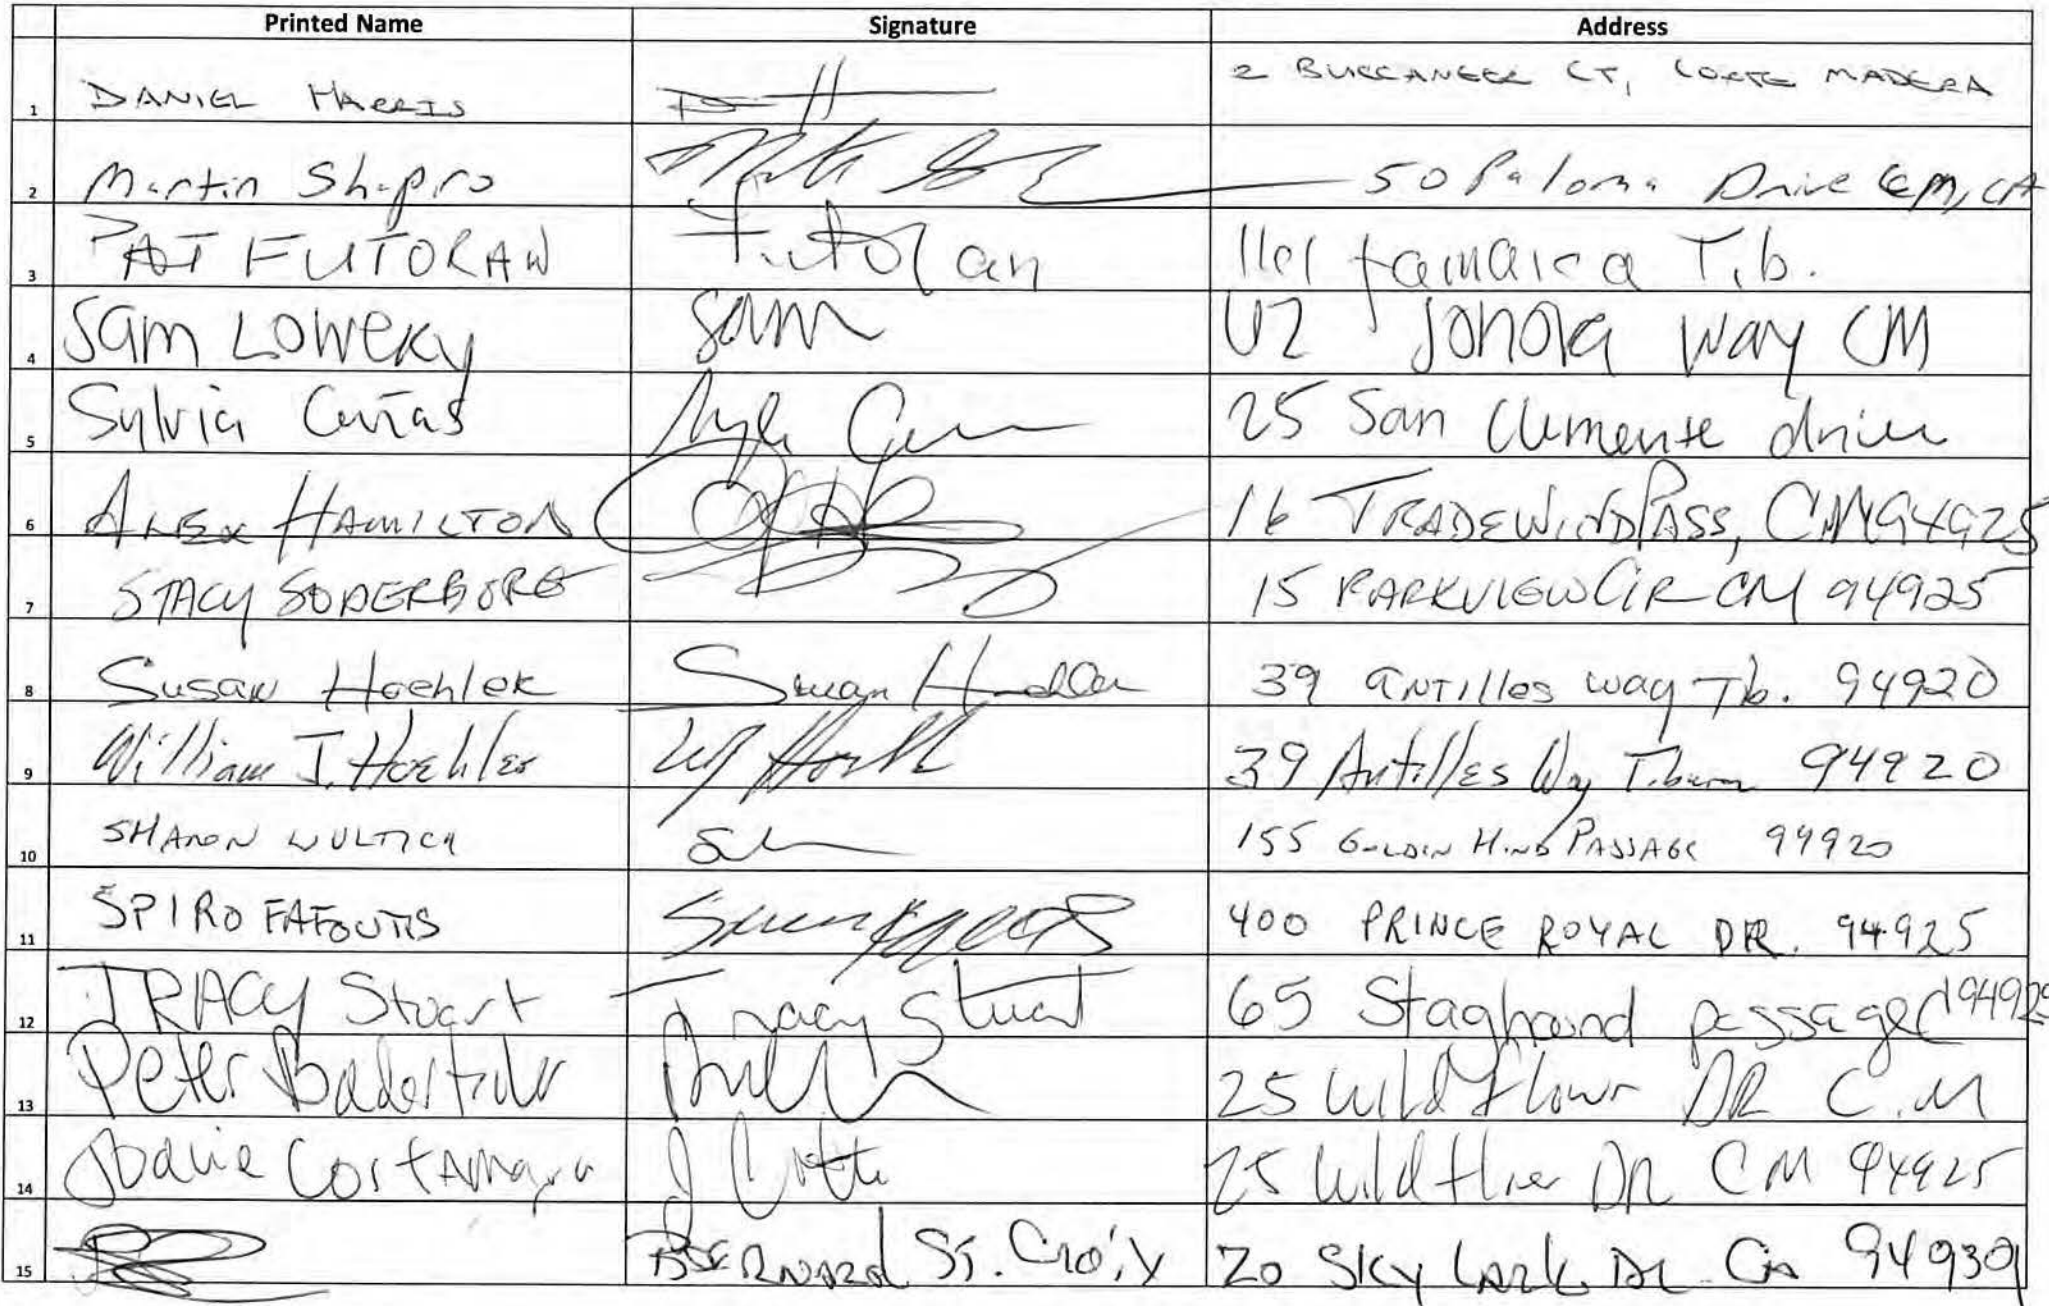 Printed Name Signature Address
1 DANIEL HARRIS 2 BUCCANEER CT, CORTE MADERA
2 Martin Shapiro 50 Paloma Drive CM, CA
3 PAT FUTORAN Futoran Jamaica Tib.
4 Sam Lowery Sam Way CM
5 Sylvia Cañas 25 San Clemente drive
6 ALEX HAMILTON 16 TRADEWIND PASS, CM 94925
7 STACY SODERBORG 15 PARKVIEW CIR CM 94925
8 Susan Hoehler Susan Hoehler 39 Antilles way Tib. 94920
9 William J. Hoehler 39 Antilles Way Tiburon 94920
10 SHARON 155 GOLDEN HIND PASSAGE 94920
11 SPIRO 400 PRINCE ROYAL DR. 94925
12 TRACY Stuart Tracy Stuart 65 Staghound passage 94925
13 Peter 25 Wildflower DR C.M
14 25 Wildflower DR CM 94925
15 BERNARD St. Croix 20 Sky Lark DR. 94939